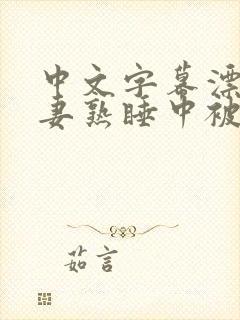 中文字幕漂
妻熟睡中被
茹言